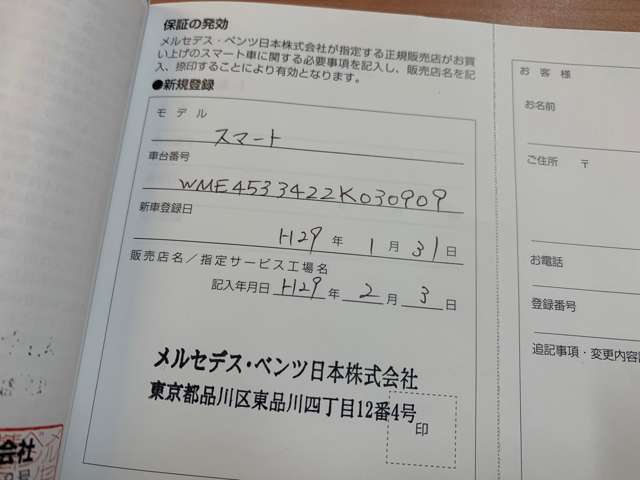 保証の発効
メルセデス・ベンツ日本株式会社が指定する正規販売店がお買
い上げのスマート車に関する必要事項を記入し、販売店名を記
入、捺印することにより有効となります。
●新規登録
モデル
スマート
車台番号
WME4533422K030909
新車登録日
H29 年 1 月 31 日
販売店名／指定サービス工場名
記入年月日 H29 年 2 月 3 日
メルセデス・ベンツ日本株式会社
東京都品川区東品川四丁目12番4号
印
お客様
お名前
ご住所 〒
お電話
登録番号
追記事項・変更内容
会社